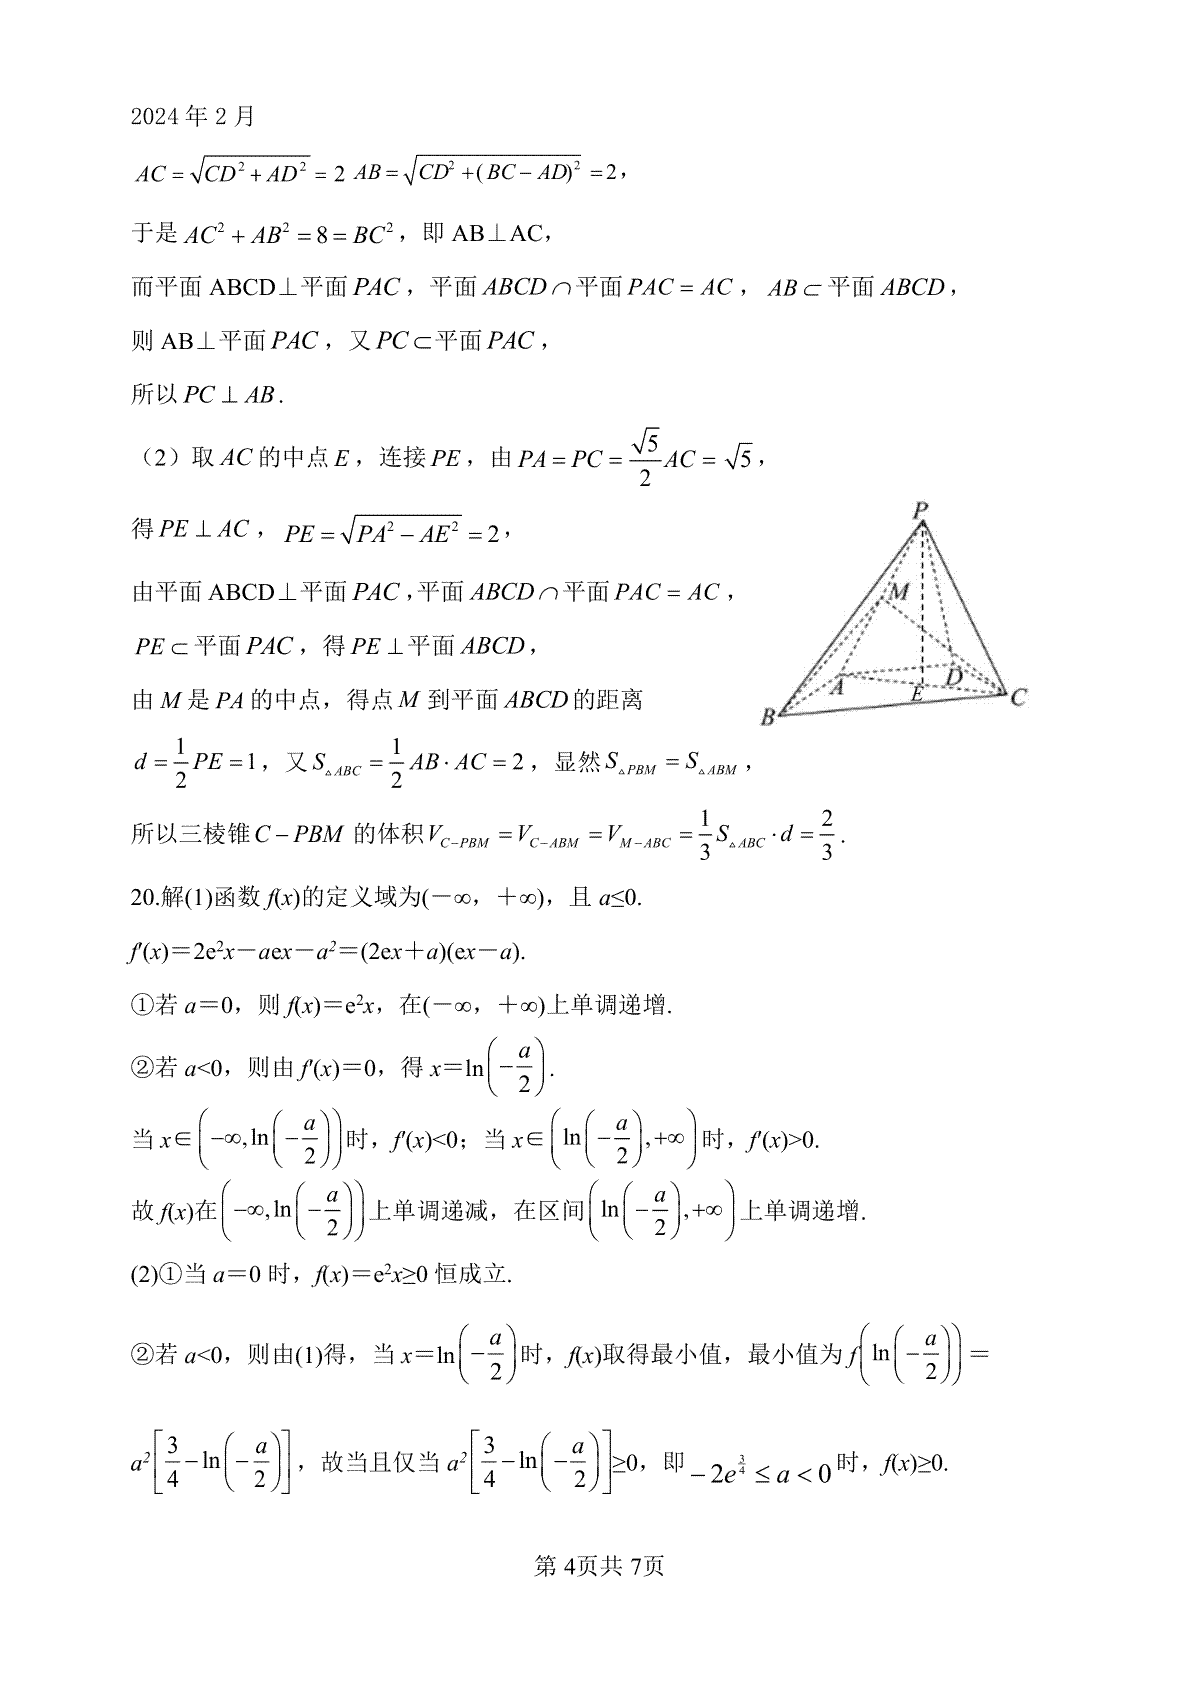 2024 年 2 月
AC = √(CD² + AD²) = 2 AB = √(CD² + (BC − AD)²) = 2，
于是 AC² + AB² = 8 = BC²，即 AB⊥AC，
而平面 ABCD⊥平面 PAC，平面 ABCD∩平面 PAC = AC，AB⊂平面 ABCD，
则 AB⊥平面 PAC，又 PC⊂平面 PAC，
所以 PC⊥AB．
（2）取 AC 的中点 E，连接 PE，由 PA = PC = (√5/2)AC = √5，
得 PE⊥AC，PE = √(PA² − AE²) = 2，
由平面 ABCD⊥平面 PAC，平面 ABCD∩平面 PAC = AC，
PE⊂平面 PAC，得 PE⊥平面 ABCD，
由 M 是 PA 的中点，得点 M 到平面 ABCD 的距离
d = 1/2 PE = 1，又 S△ABC = 1/2 AB·AC = 2，显然 S△PBM = S△ABM，
所以三棱锥 C−PBM 的体积 V_{C−PBM} = V_{C−ABM} = V_{M−ABC} = 1/3 S△ABC·d = 2/3．
P
M
A
D
E
C
B
20.解(1)函数 f(x)的定义域为(－∞，＋∞)，且 a≤0.
f′(x)＝2e²x－aex－a²＝(2ex＋a)(ex－a).
①若 a＝0，则 f(x)＝e²x，在(－∞，＋∞)上单调递增.
②若 a<0，则由 f′(x)＝0，得 x＝ln(−a/2).
当 x∈(−∞,ln(−a/2))时，f′(x)<0；当 x∈(ln(−a/2),+∞)时，f′(x)>0.
故 f(x)在(−∞,ln(−a/2))上单调递减，在区间(ln(−a/2),+∞)上单调递增.
(2)①当 a＝0 时，f(x)＝e²x≥0 恒成立.
②若 a<0，则由(1)得，当 x＝ln(−a/2)时，f(x)取得最小值，最小值为 f(ln(−a/2))＝
a²[3/4−ln(−a/2)]，故当且仅当 a²[3/4−ln(−a/2)]≥0，即 −2e^(3/4) ≤ a < 0 时，f(x)≥0.
第 4页共 7页